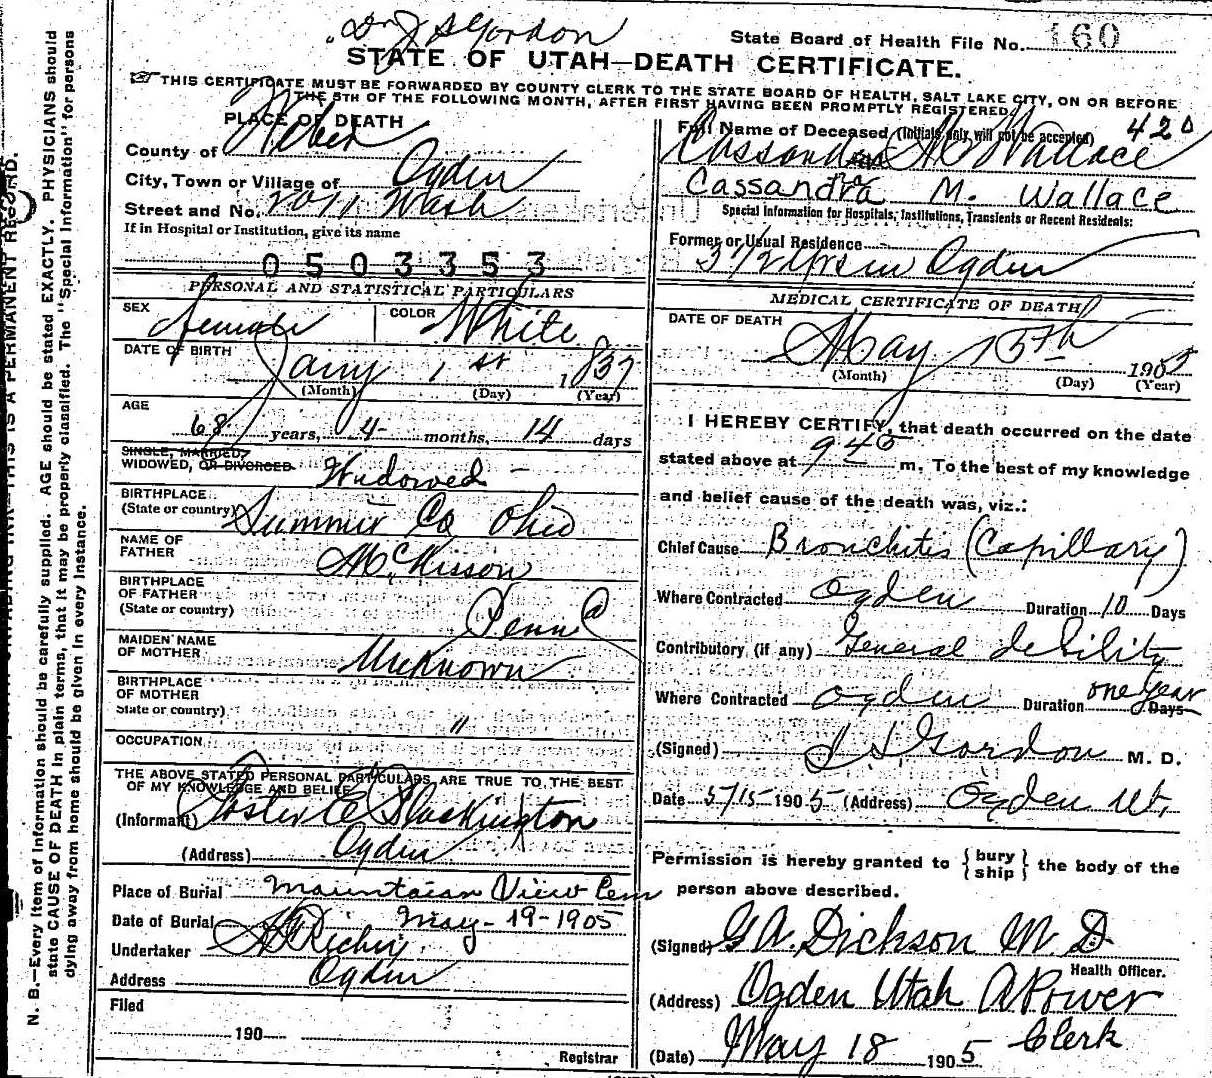 Dr J S Gordon
State Board of Health File No. 160
STATE OF UTAH—DEATH CERTIFICATE.
THIS CERTIFICATE MUST BE FORWARDED BY COUNTY CLERK TO THE STATE BOARD OF HEALTH, SALT LAKE CITY, ON OR BEFORE
THE 5TH OF THE FOLLOWING MONTH, AFTER FIRST HAVING BEEN PROMPTLY REGISTERED.
PLACE OF DEATH
County of Weber
City, Town or Village of Ogden
Street and No. 2071 Wash
If in Hospital or Institution, give its name
0503353
PERSONAL AND STATISTICAL PARTICULARS
SEX female COLOR White
DATE OF BIRTH Jany 1st 1837
(Month) (Day) (Year)
AGE
68 years, 4 months, 14 days
SINGLE, MARRIED,
WIDOWED, OR DIVORCED Widowed
BIRTHPLACE
(State or country) Summit Co Ohio
NAME OF
FATHER McKisson
BIRTHPLACE
OF FATHER
(State or country) Penn
MAIDEN NAME
OF MOTHER Unknown
BIRTHPLACE
OF MOTHER
State or country) "
OCCUPATION
THE ABOVE STATED PERSONAL PARTICULARS ARE TRUE TO THE BEST
OF MY KNOWLEDGE AND BELIEF
(Informant) Foster E Blackington
(Address) Ogden
Place of Burial Mountain View Cem
Date of Burial May-19-1905
Undertaker Richey
Address Ogden
Filed
190
Registrar
Full Name of Deceased (Initials only will not be accepted) 420
Cassandra M Wallace
Cassandra M. Wallace
Special Information for Hospitals, Institutions, Transients or Recent Residents:
Former or Usual Residence
3 1/2 yrs in Ogden
MEDICAL CERTIFICATE OF DEATH
DATE OF DEATH
May 15th 1905
(Month) (Day) (Year)
I HEREBY CERTIFY, that death occurred on the date
stated above at 9 45 m. To the best of my knowledge
and belief cause of the death was, viz.:
Chief Cause Bronchitis (Capillary)
Where Contracted Ogden Duration 10 Days
Contributory (if any) General debility
Where Contracted Ogden Duration one year Days
(Signed) J S Gordon M. D.
Date 5/15 1905 (Address) Ogden Ut.
Permission is hereby granted to {bury
ship} the body of the
person above described.
(Signed) G A. Dickson M D
Health Officer.
(Address) Ogden Utah A Power
Clerk
(Date) May 18 1905
N. B.—Every item of information should be carefully supplied. AGE should be stated EXACTLY. PHYSICIANS should
state CAUSE OF DEATH in plain terms, that it may be properly classified. The "Special Information" for persons
dying away from home should be given in every instance.
THIS IS A PERMANENT RECORD.